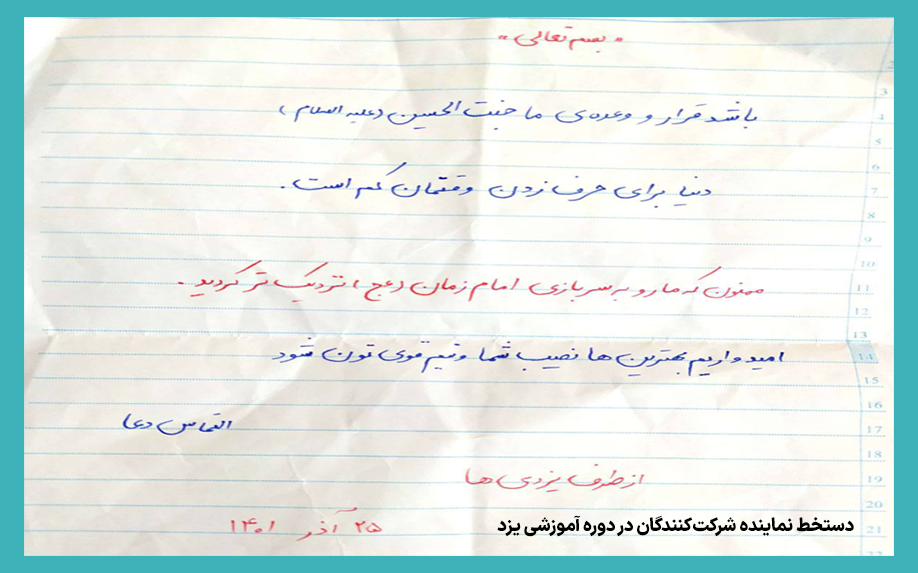 "بسم تعالی"
باشد قرار و وعده‌ی ما جنت الحسین (علیه السلام)
دنیا برای حرف زدن وقتمان کم است.
ممنون که مارو به سربازی امام زمان (عج) نزدیک تر کردید.
امیدواریم بهترین ها نصیب شما و تیم قوی تون شود
التماس دعا
از طرف یزدی ها
۲۵ آذر ۱۴۰۱
دستخط نماینده شرکت‌کنندگان در دوره آموزشی یزد
3
4
5
6
7
8
9
10
11
12
13
14
15
16
17
18
19
20
21